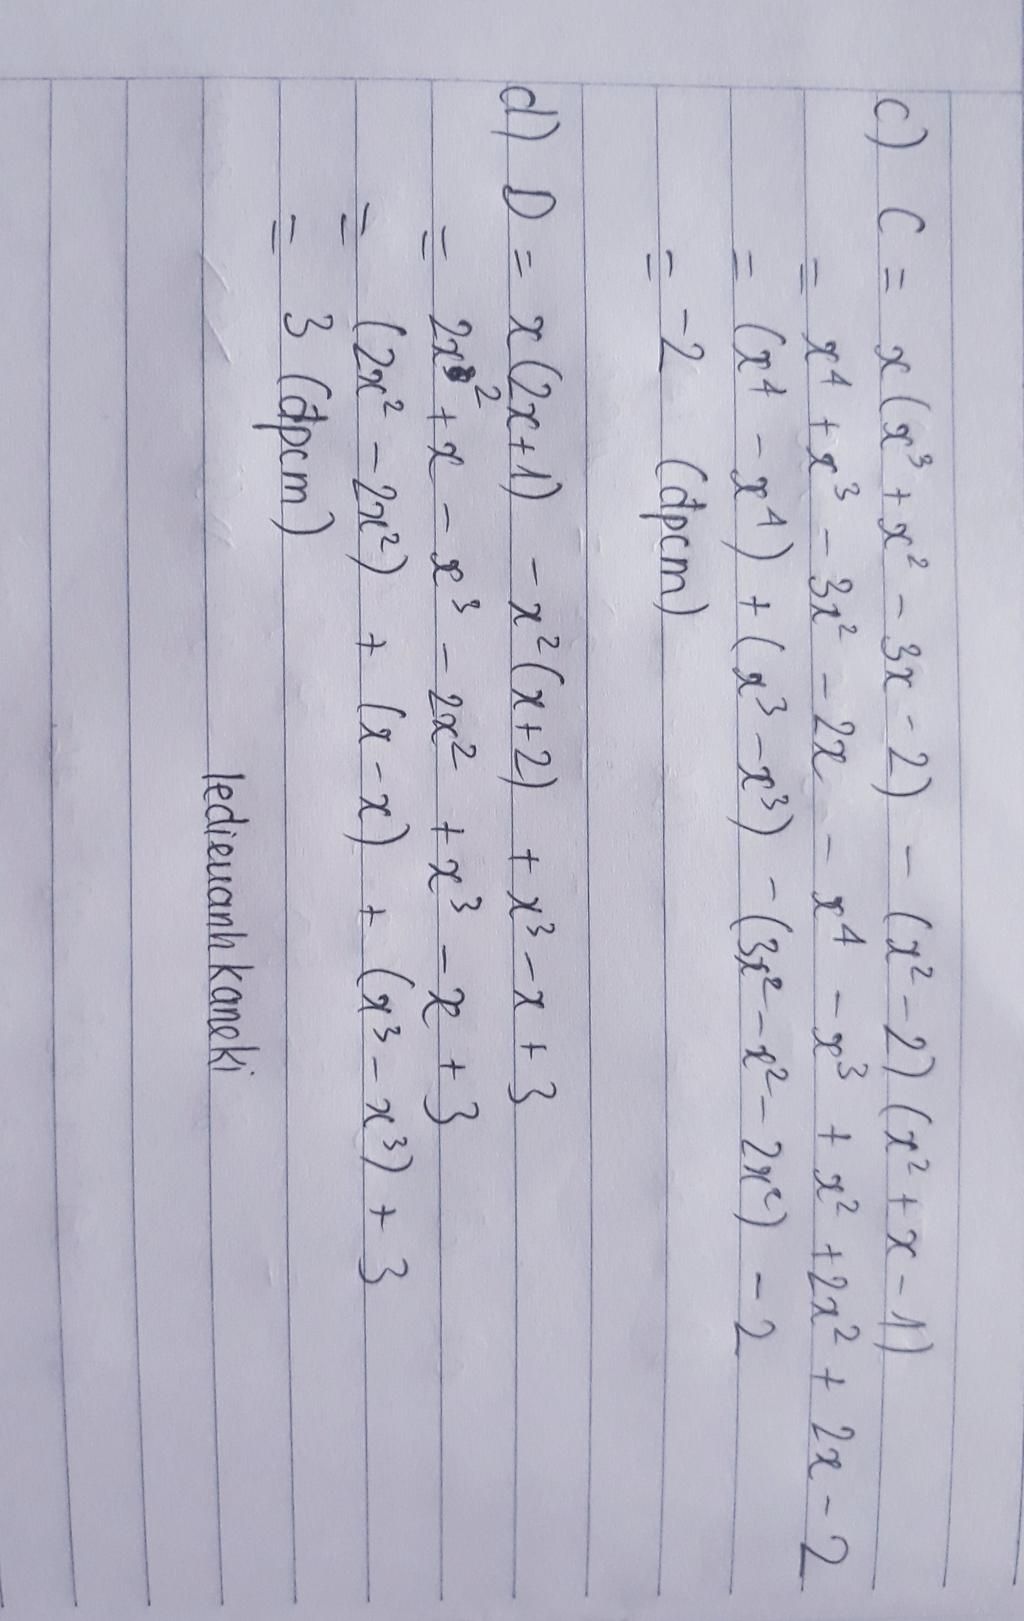 c) C = x(x³ + x² - 3x - 2) - (x² - 2)(x² + x - 1)
= x⁴ + x³ - 3x² - 2x - x⁴ - x³ + x² + 2x² + 2x - 2
= (x⁴ - x⁴) + (x³ - x³) - (3x² - x² - 2x²) - 2
= -2 (đpcm)
d) D = x(2x+1) - x²(x+2) + x³ - x + 3
= 2x² + x - x³ - 2x² + x³ - x + 3
= (2x² - 2x²) + (x - x) + (x³ - x³) + 3
= 3 (đpcm)
ledieuanhkaneki